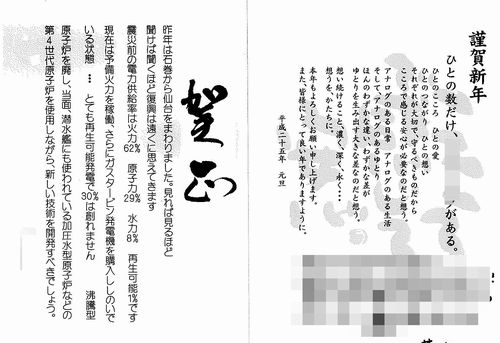 謹賀新年
ひとの数だけ、
がある。
ひとのこころ ひとの愛
ひとのつながり ひとの想い
それぞれが大切で、守るべきものだから
こころで感じる安心が必要なのだと想う。
アナログのある日常 アナログのある生活
そして、アナログのあるゆとり
ほんのわずかな違い、わずかな差が
ゆとりを生み出す大きな差なのだと想う。
想い続けること、濃く、深く、永く・・・
想うを、かたちに。
本年もよろしくお願い申し上げます。
また、皆様にとって良い年でありますように。
平成二十五年 元旦
賀正
昨年は石巻から仙台をまわりました。見れば見るほど
聞けば聞くほど復興は遠くに思えてきます
震災前の電力供給率は火力62% 原子力29% 水力8% 再生可能1%です
現在は予備火力を稼働、さらにガスタービン発電機を購入ししのいで
いる状態 ・・・ とても再生可能発電で30%は創れません 沸騰型
原子炉を廃し、当面、潜水艦にも使われている加圧水型原子炉などの
第4世代原子炉を使用しながら、新しい技術を開発すべきでしょう。